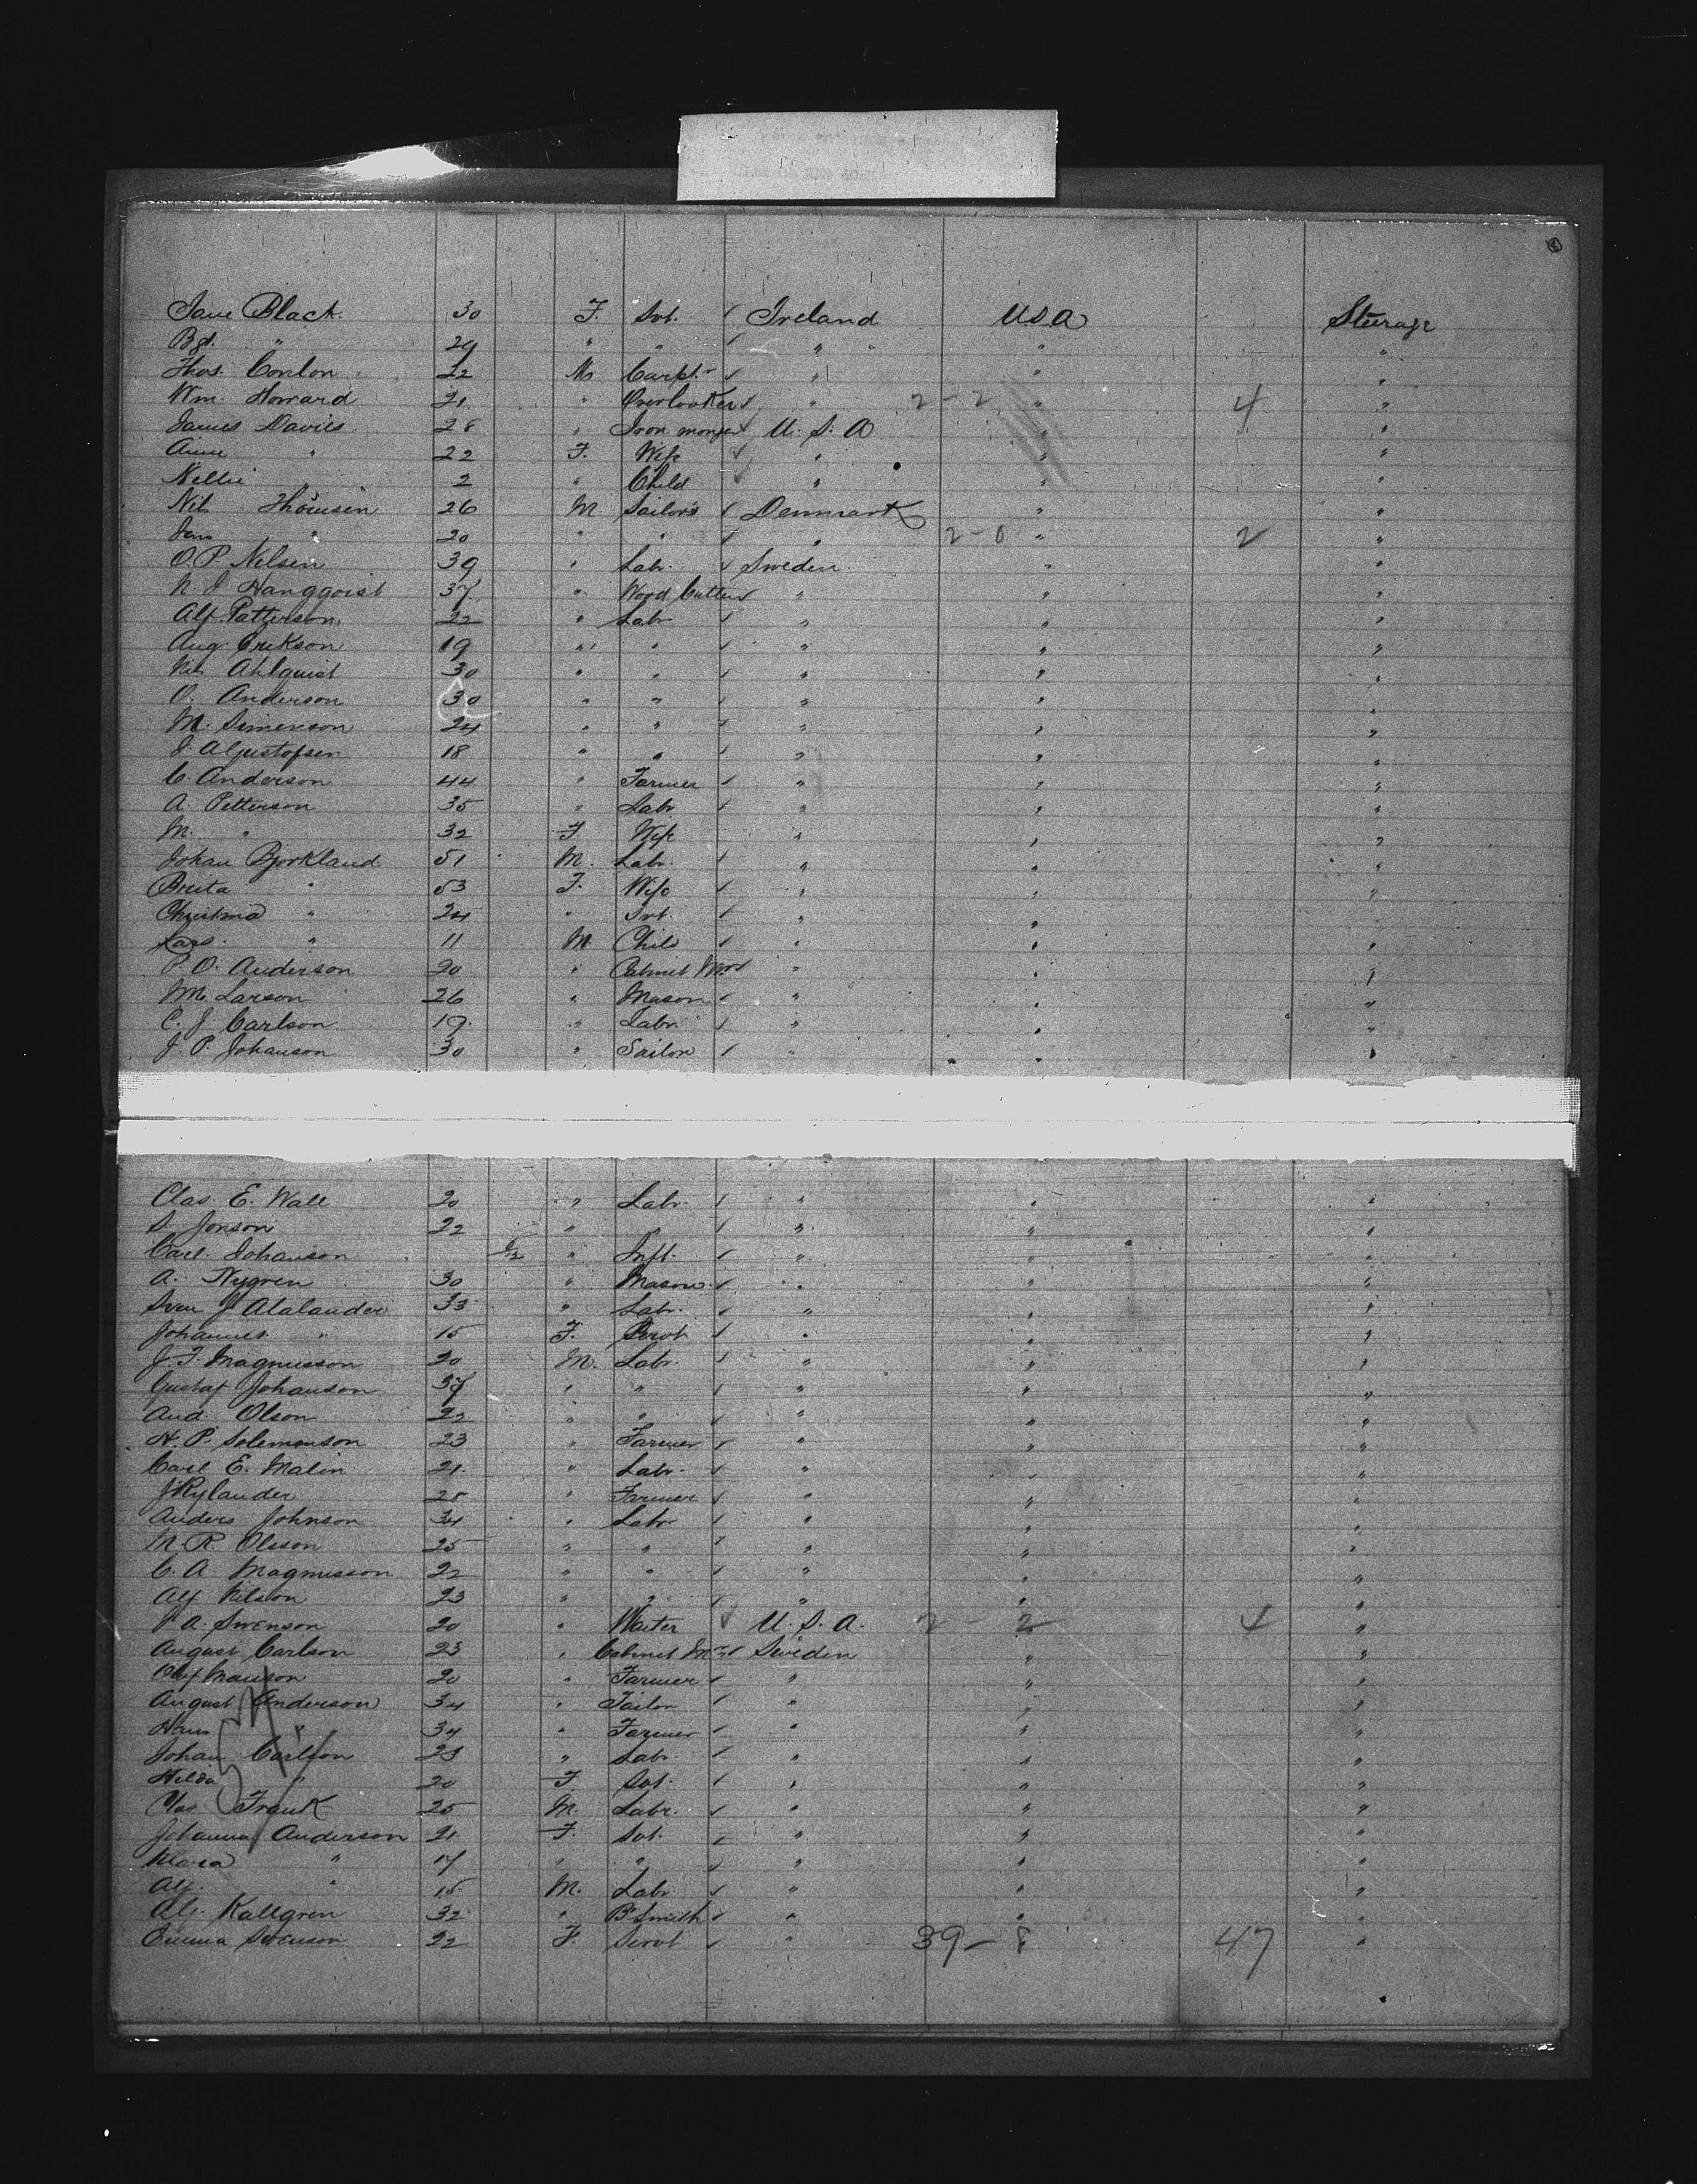 Jane Black. 30 F. Svt. ✓ Ireland USA Steerage
Bgt. " 29 " " ✓ " " "
Thos. Conlon 22 M Carpt. ✓ " " "
Wm. Howard 21 " Overlooker ✓ " 2-2 " 4 "
James Davies 28 " Iron monger ✓ U.S.A " "
Anne " 22 F. Wife ✓ " " "
Nellie " 2 " Child ✓ " " "
Nils Thomsen 26 M Sailors ✓ Denmark " "
Jens " 20 " " ✓ " 2-0 " 2 "
O.P. Nelsen 39 " Labr. ✓ Sweden " "
N. J Hangqvist 37 " Wood Cutter ✓ " " "
Alf. Patterson 22 " Labr ✓ " " "
Aug. Erikson 19 " " ✓ " " "
Nils Ahlquist 30 " " ✓ " " "
O. Anderson 30 " " ✓ " " "
M. Simenson 24 " " ✓ " " "
J. A Gustofsen 18 " " ✓ " " "
C. Anderson 44 " Farmer ✓ " " "
A. Petterson 35 " Labr ✓ " " "
M. " 32 F Wife " " "
Johan Bjorkland 51 M. Labr. ✓ " " "
Brita " 53 F. Wife ✓ " " "
Christina " 24 " Svt. ✓ " " "
Lars. " 11 M Child ✓ " " "
P. O. Anderson 20 " Cabinet Mkr ✓ " " "
M. Larson 26 " Mason ✓ " " "
C. J. Carlson 19 " Labr. ✓ " " "
J. P. Johanson 30 " Sailor ✓ " " "
Clas. E. Wall 20 " Labr. ✓ " " "
S. Jonson 22 " " ✓ " " "
Carl. Johanson " Inft. ✓ " " "
A. Nygren 30 " Mason ✓ " " "
Sven J Alalander 33 " Labr. ✓ " " "
Johannes " 15 F. Servt ✓ " " "
J. F. Magnusson 20 M. Labr. ✓ " " "
Gustaf Johanson 37 " " ✓ " " "
And. Olson 22 " " ✓ " " "
N. P. Solemonson 23 " Farmer ✓ " " "
Carl E. Malin 21 " Labr. ✓ " " "
J Rylander 28 " Farmer ✓ " " "
Anders Johnson 34 " Labr ✓ " " "
N. R Olsson 25 " " ✓ " " "
C. A. Magnusson 22 " " ✓ " " "
Alf Nilson 23 " " ✓ " " "
P A. Swenson 20 " Waiter ✓ U.S.A. 2 - 2 4 "
August Carlson 23 " Cabinet Mkr ✓ Sweden " "
Olof Manson 20 " Farmer ✓ " " "
August Anderson 34 " Tailor ✓ " " "
Hans " 34 " Farmer ✓ " " "
Johan Carlson 23 " Labr. ✓ " " "
Hilda " 20 F Svt. ✓ " " "
Clas Frank 25 M. Labr. ✓ " " "
Johanna Anderson 21 F. Svt. ✓ " " "
Klara " 17 " " ✓ " " "
Alf. " 15 M. Labr ✓ " " "
Alf. Kallgren 32 " B'Smith ✓ " " "
Emma Swenson 22 F. Servt ✓ " 39-8 47 "